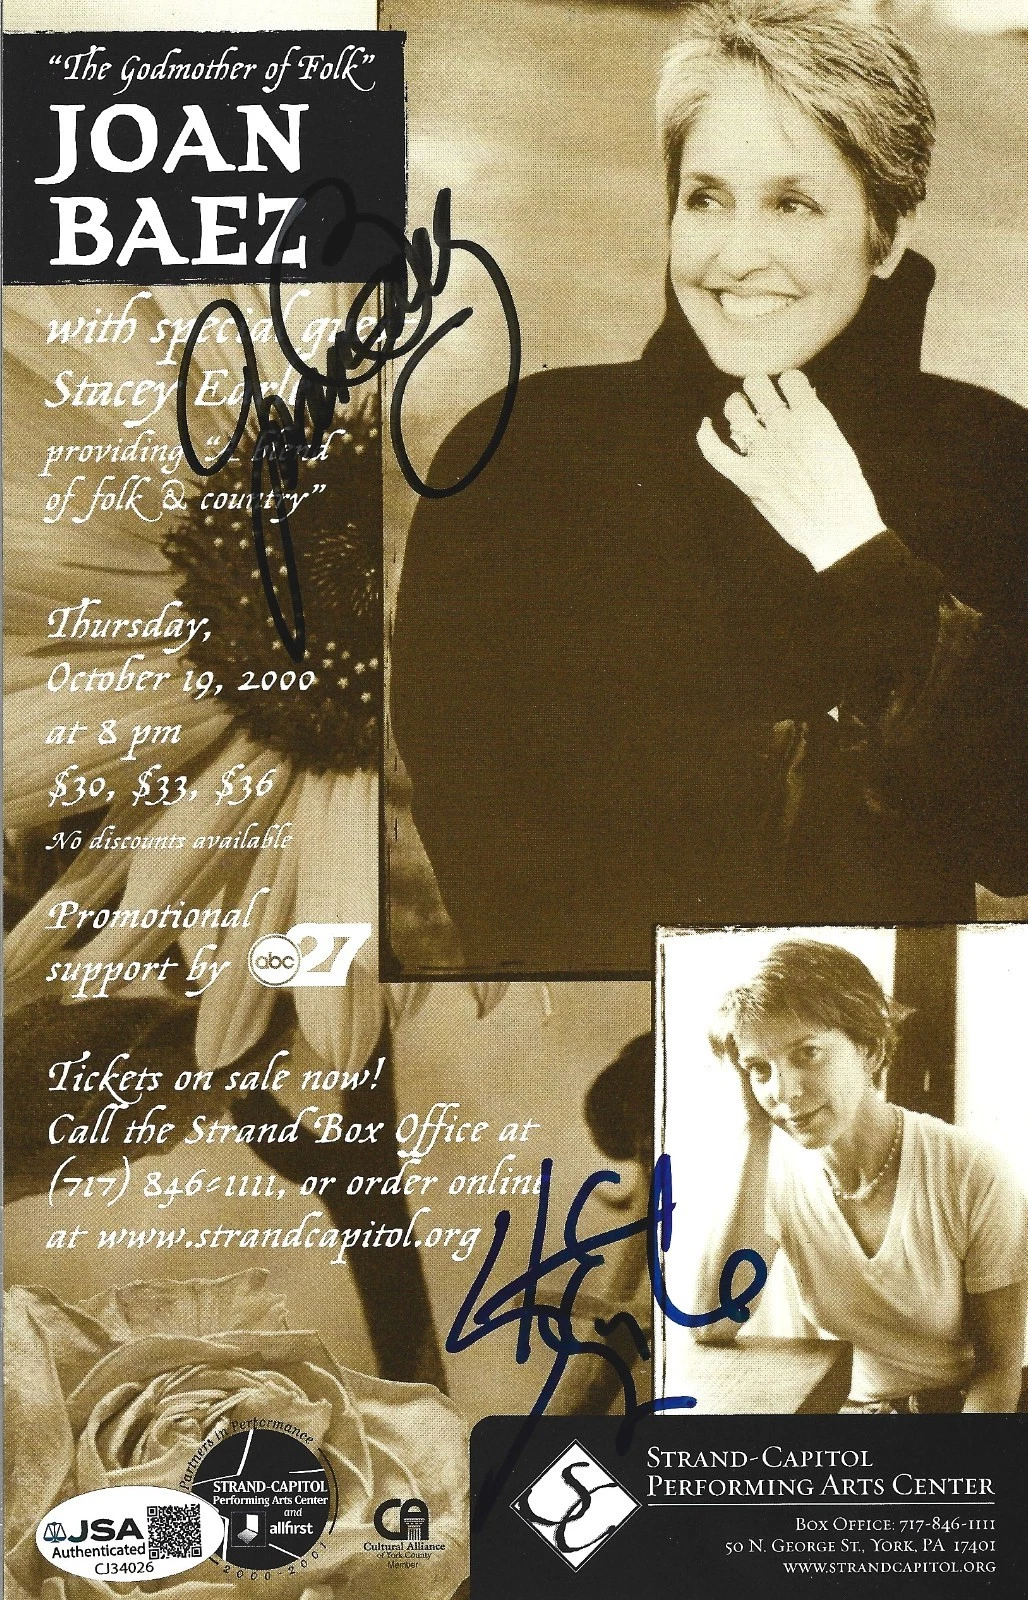 “The Godmother of Folk”
JOAN
BAEZ
with special guest
Stacey Earle
providing “A blend
of folk & country”
Thursday,
October 19, 2000
at 8 pm
$30, $33, $36
No discounts available
Promotional
support by abc 27
Tickets on sale now!
Call the Strand Box Office at
(717) 846-1111, or order online
at www.strandcapitol.org
Joan Baez
Partners in Performance
STRAND-CAPITOL
Performing Arts Center
and
allfirst
2000-2001
JSA
Authenticated
CJ34026
CA
Cultural Alliance
of York County
Member
SCC
STRAND-CAPITOL
PERFORMING ARTS CENTER
BOX OFFICE: 717-846-1111
50 N. GEORGE ST., YORK, PA 17401
WWW.STRANDCAPITOL.ORG